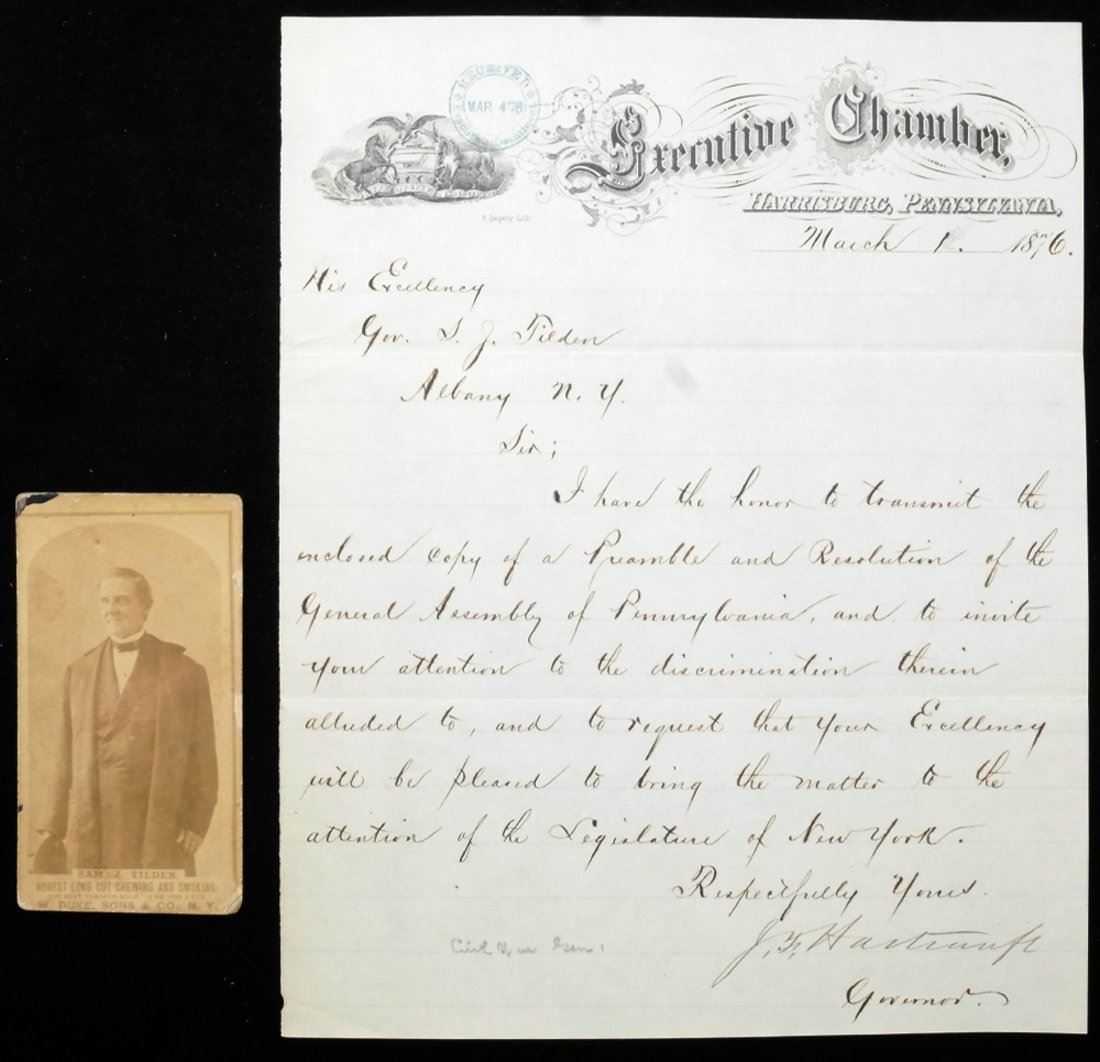 RECEIVED
MAR 4 76
Executive Chamber,
HARRISBURG, PENNSYLVANIA,
March 1. 1876.
His Excellency
Gov. S. J. Tilden
Albany N. Y.
Sir;
I have the honor to transmit the
enclosed copy of a Preamble and Resolution of the
General Assembly of Pennsylvania, and to invite
your attention to the discrimination therein
alluded to, and to request that your Excellency
will be pleased to bring the matter to the
attention of the Legislature of New York.
Respectfully Yours.
J. F. Hartranft
Governor.
Civil War Gen.
SAM. J. TILDEN,
HONEST LONG CUT CHEWING AND SMOKING,
W. DUKE, SONS & CO., N. Y.